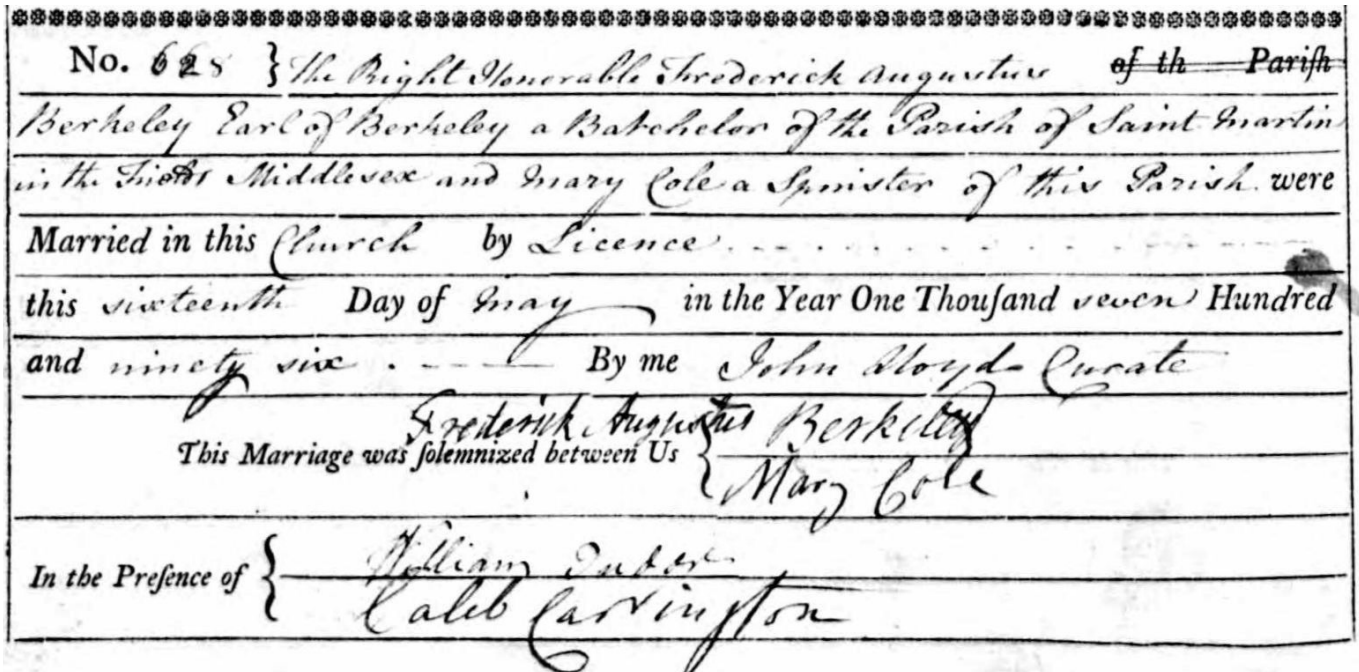 No. 628 } The Right Honorable Frederick Augustus of th Pariſh
Berkeley Earl of Berkeley a Batchelor of the Parish of Saint Martin
in the Fields Middlesex and Mary Cole a Spinister of this Parish were
Married in this Church by Licence
this sixteenth Day of May in the Year One Thouſand seven Hundred
and ninety six By me John Lloyd Curate
Frederick Augustus Berkeley
This Marriage was ſolemnized between Us {
Mary Cole
William Tudor
In the Preſence of {
Caleb Carrington